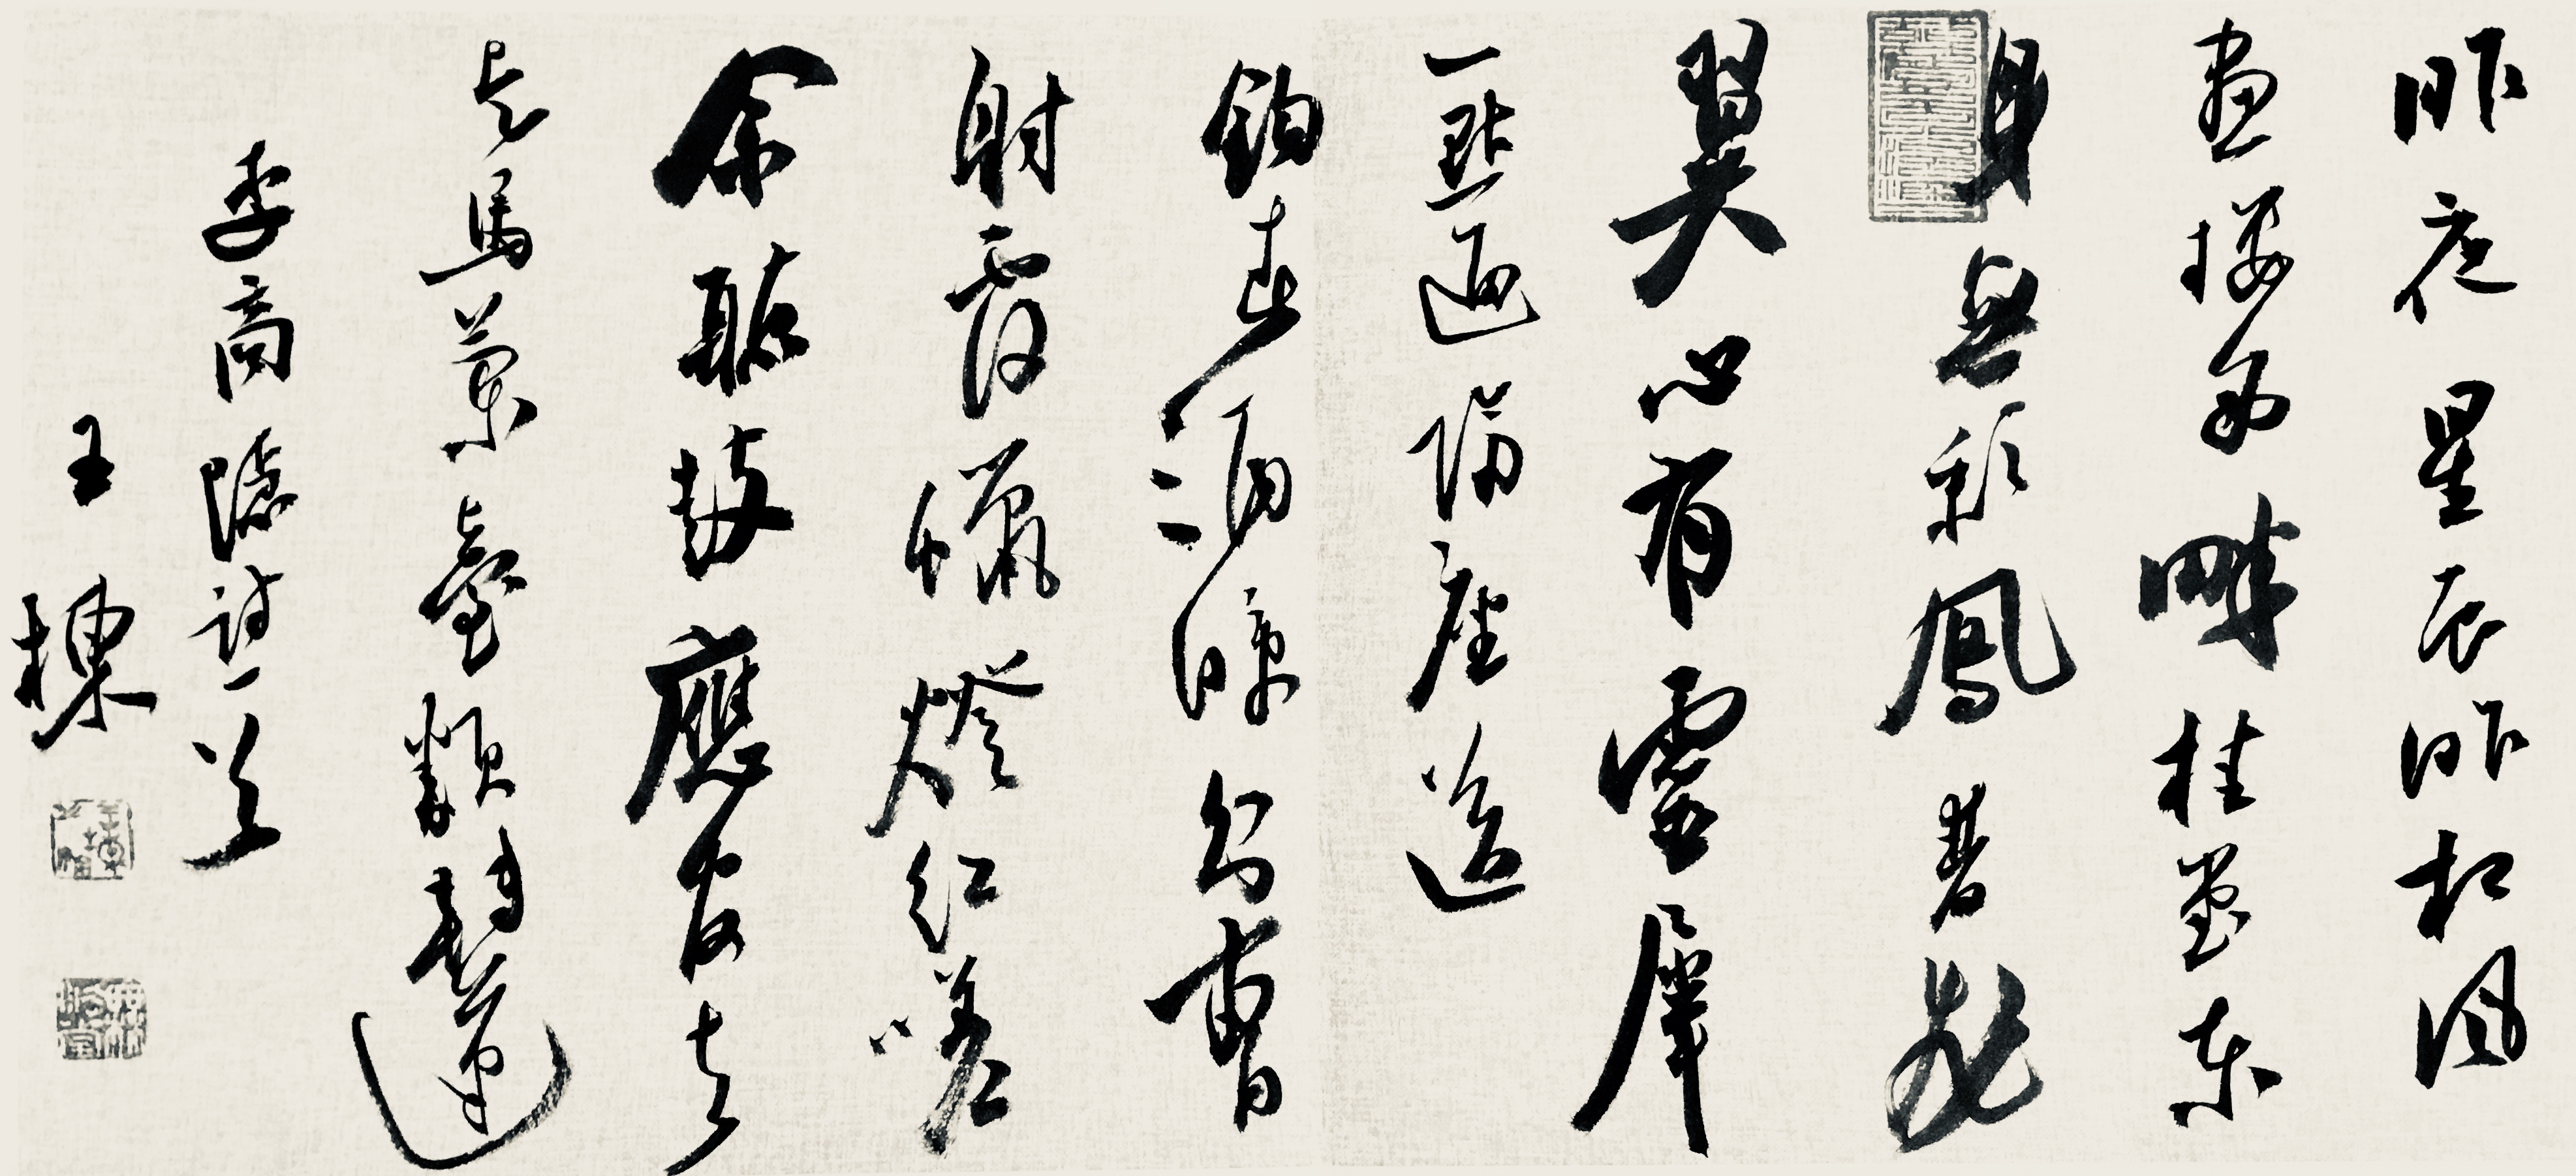 昨夜星辰昨夜風
畫樓西畔桂堂東
身無彩鳳雙飛
翼心有靈犀
一點通隔座送
鉤春酒暖分曹
射覆蠟燈紅嗟
余聽鼓應官去
走馬蘭臺類轉蓬
李商隱詩一首
王棟